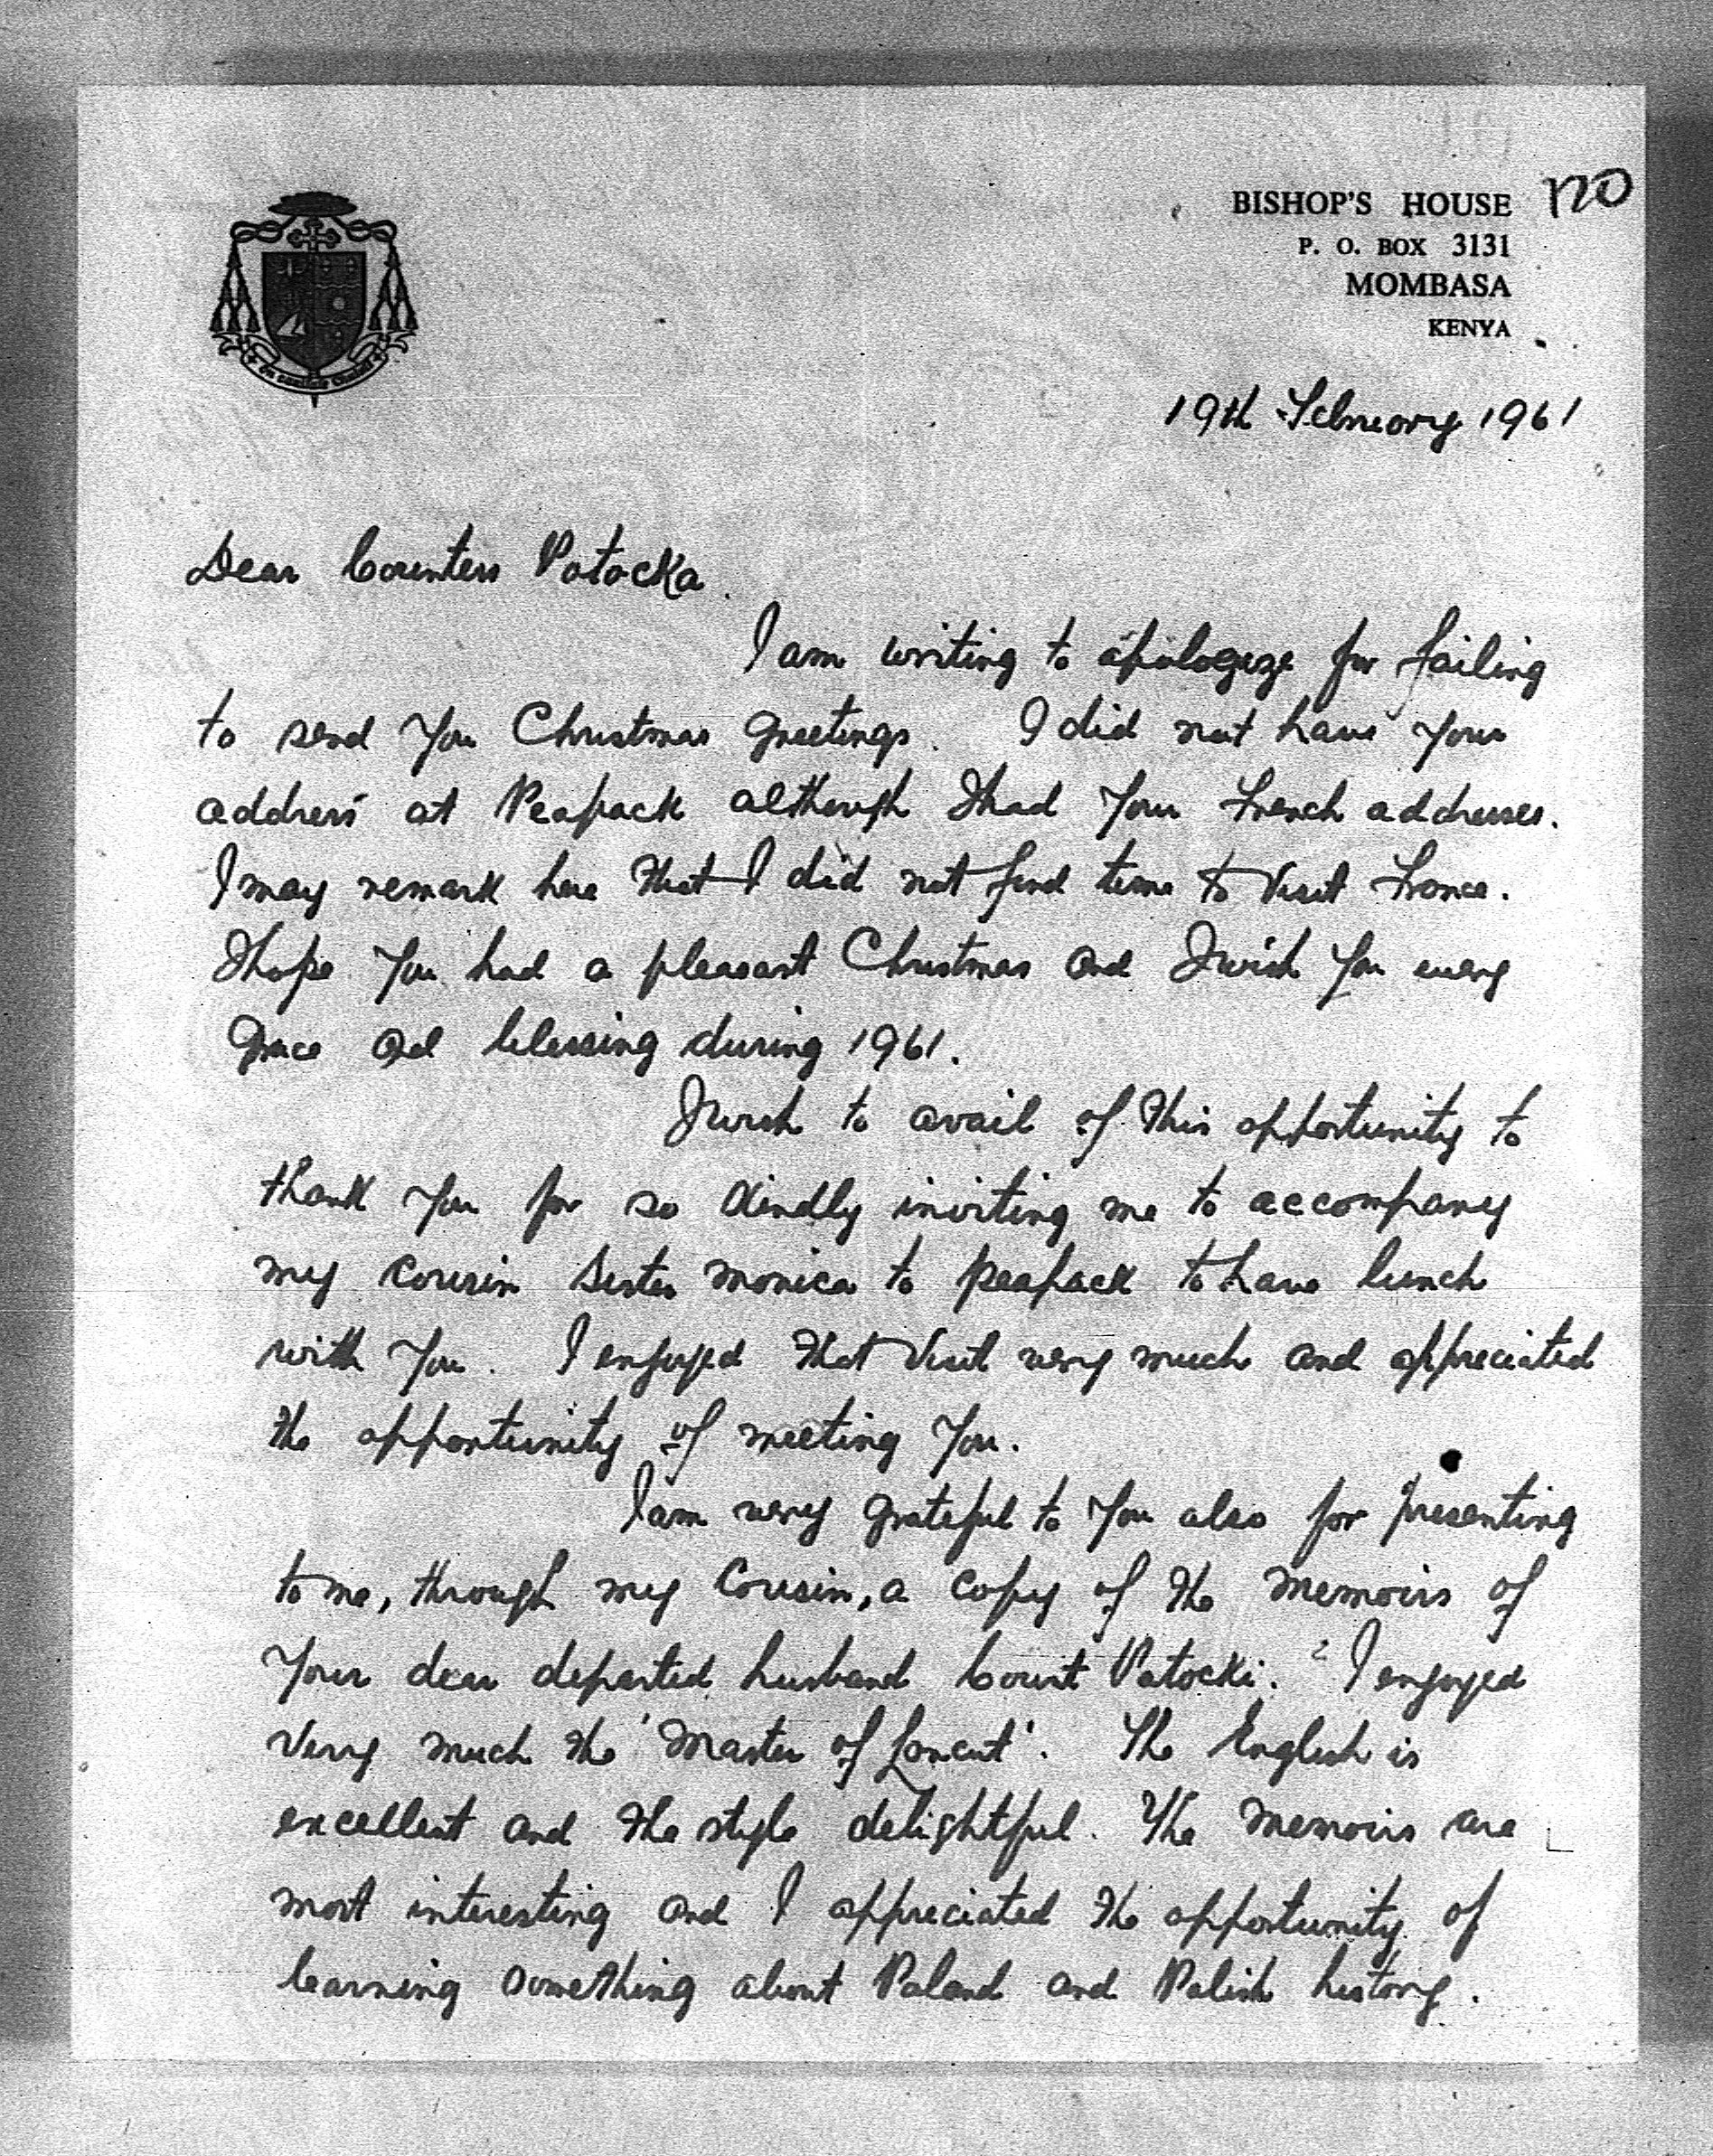 BISHOP'S HOUSE
170
P. O. BOX 3131
MOMBASA
KENYA
19th February 1961
Dear Countess Potocka.
I am writing to apologize for failing
to send you Christmas greetings. I did not have your
address at Peapack although I had your French addresses.
I may remark here that I did not find time to visit France.
I hope you had a pleasant Christmas and I wish you every
grace and blessing during 1961.
I wish to avail of this opportunity to
thank you for so kindly inviting me to accompany
my cousin Sister Monica to Peapack to have lunch
with you. I enjoyed that visit very much and appreciated
the opportunity of meeting you.
I am very grateful to you also for presenting
to me, through my cousin, a copy of the memoirs of
your dear departed husband Count Potocki. I enjoyed
very much the 'Master of Lancut'. The English is
excellent and the style delightful. The memoirs are
most interesting and I appreciated the opportunity of
learning something about Poland and Polish history.